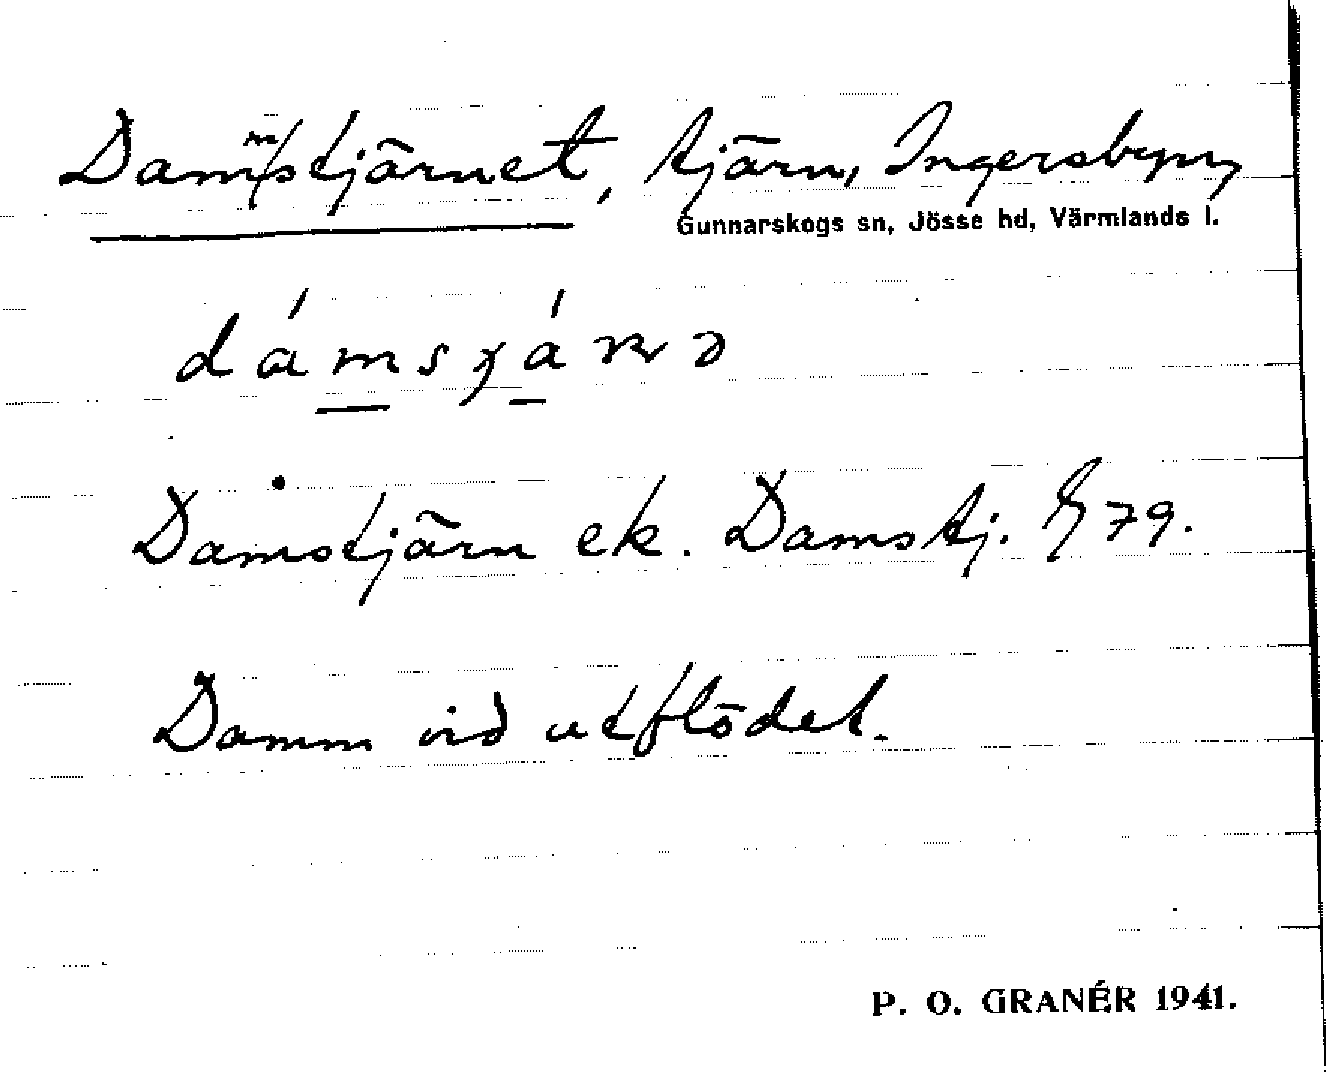 Dammstjärnet, tjärn, Ingersbyn,
Gunnarskogs sn, Jösse hd, Värmlands l.
Damstjärn ek. Damstj. 79.
Damm vid utflödet.
P. O. GRANÉR 1941.